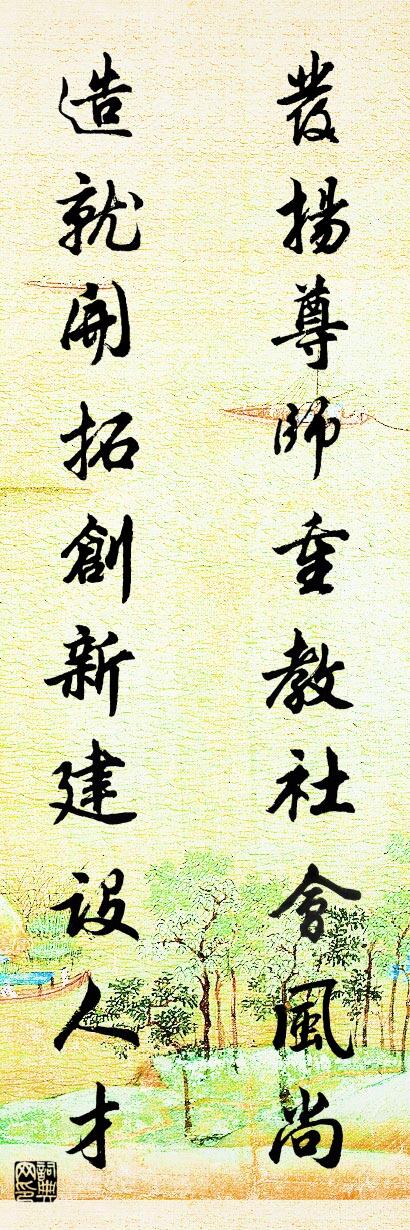 發揚尊師重教社會風尚
造就開拓創新建設人才
詞典網印